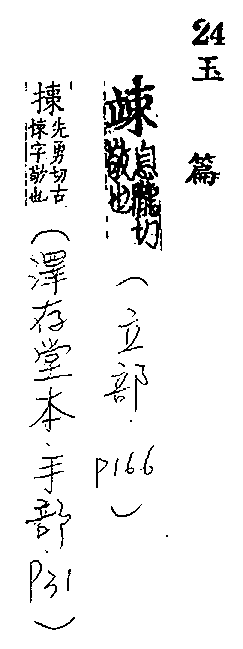 24玉篇
竦息隴切敬也(立部.p166)
捒先勇切古悚字敬也(澤存堂本.手部.p31)